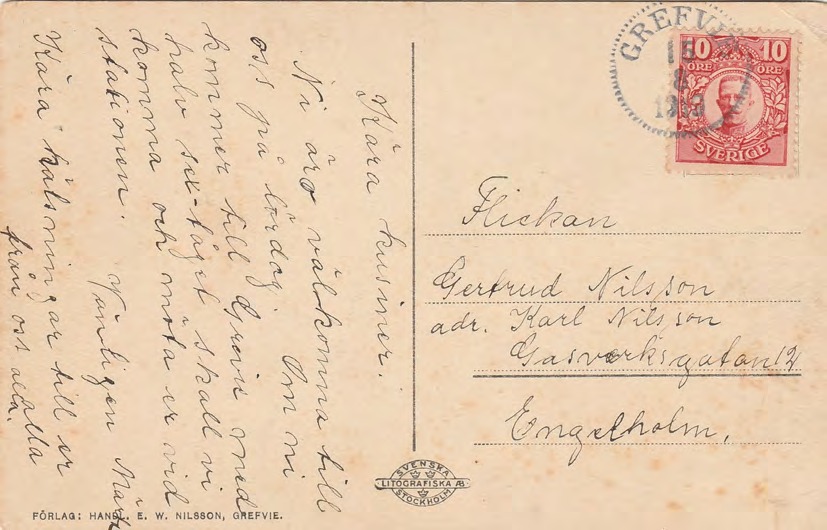 Kära kusiner.
Ni äro välkomna till
oss på lördag. Om ni
kommer till Grevie med
halv sex-tåget skall vi
komma och möta er vid
stationen. Vänligen Märta
Kära hälsningar till er
från oss alla.
GREFVIE
15
8
1913
10 10
ÖRE ÖRE
SVERIGE
Flickan
Gertrud Nilsson
adr. Karl Nilsson
Gasverksgatan 12
Engelholm.
SVENSKA
LITOGRAFISKA AB
STOCKHOLM
FÖRLAG: HANDL. E. W. NILSSON, GREFVIE.